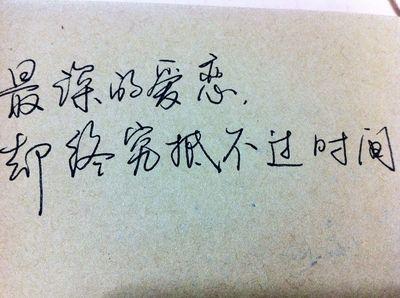 最深的爱恋.
却终究抵不过时间